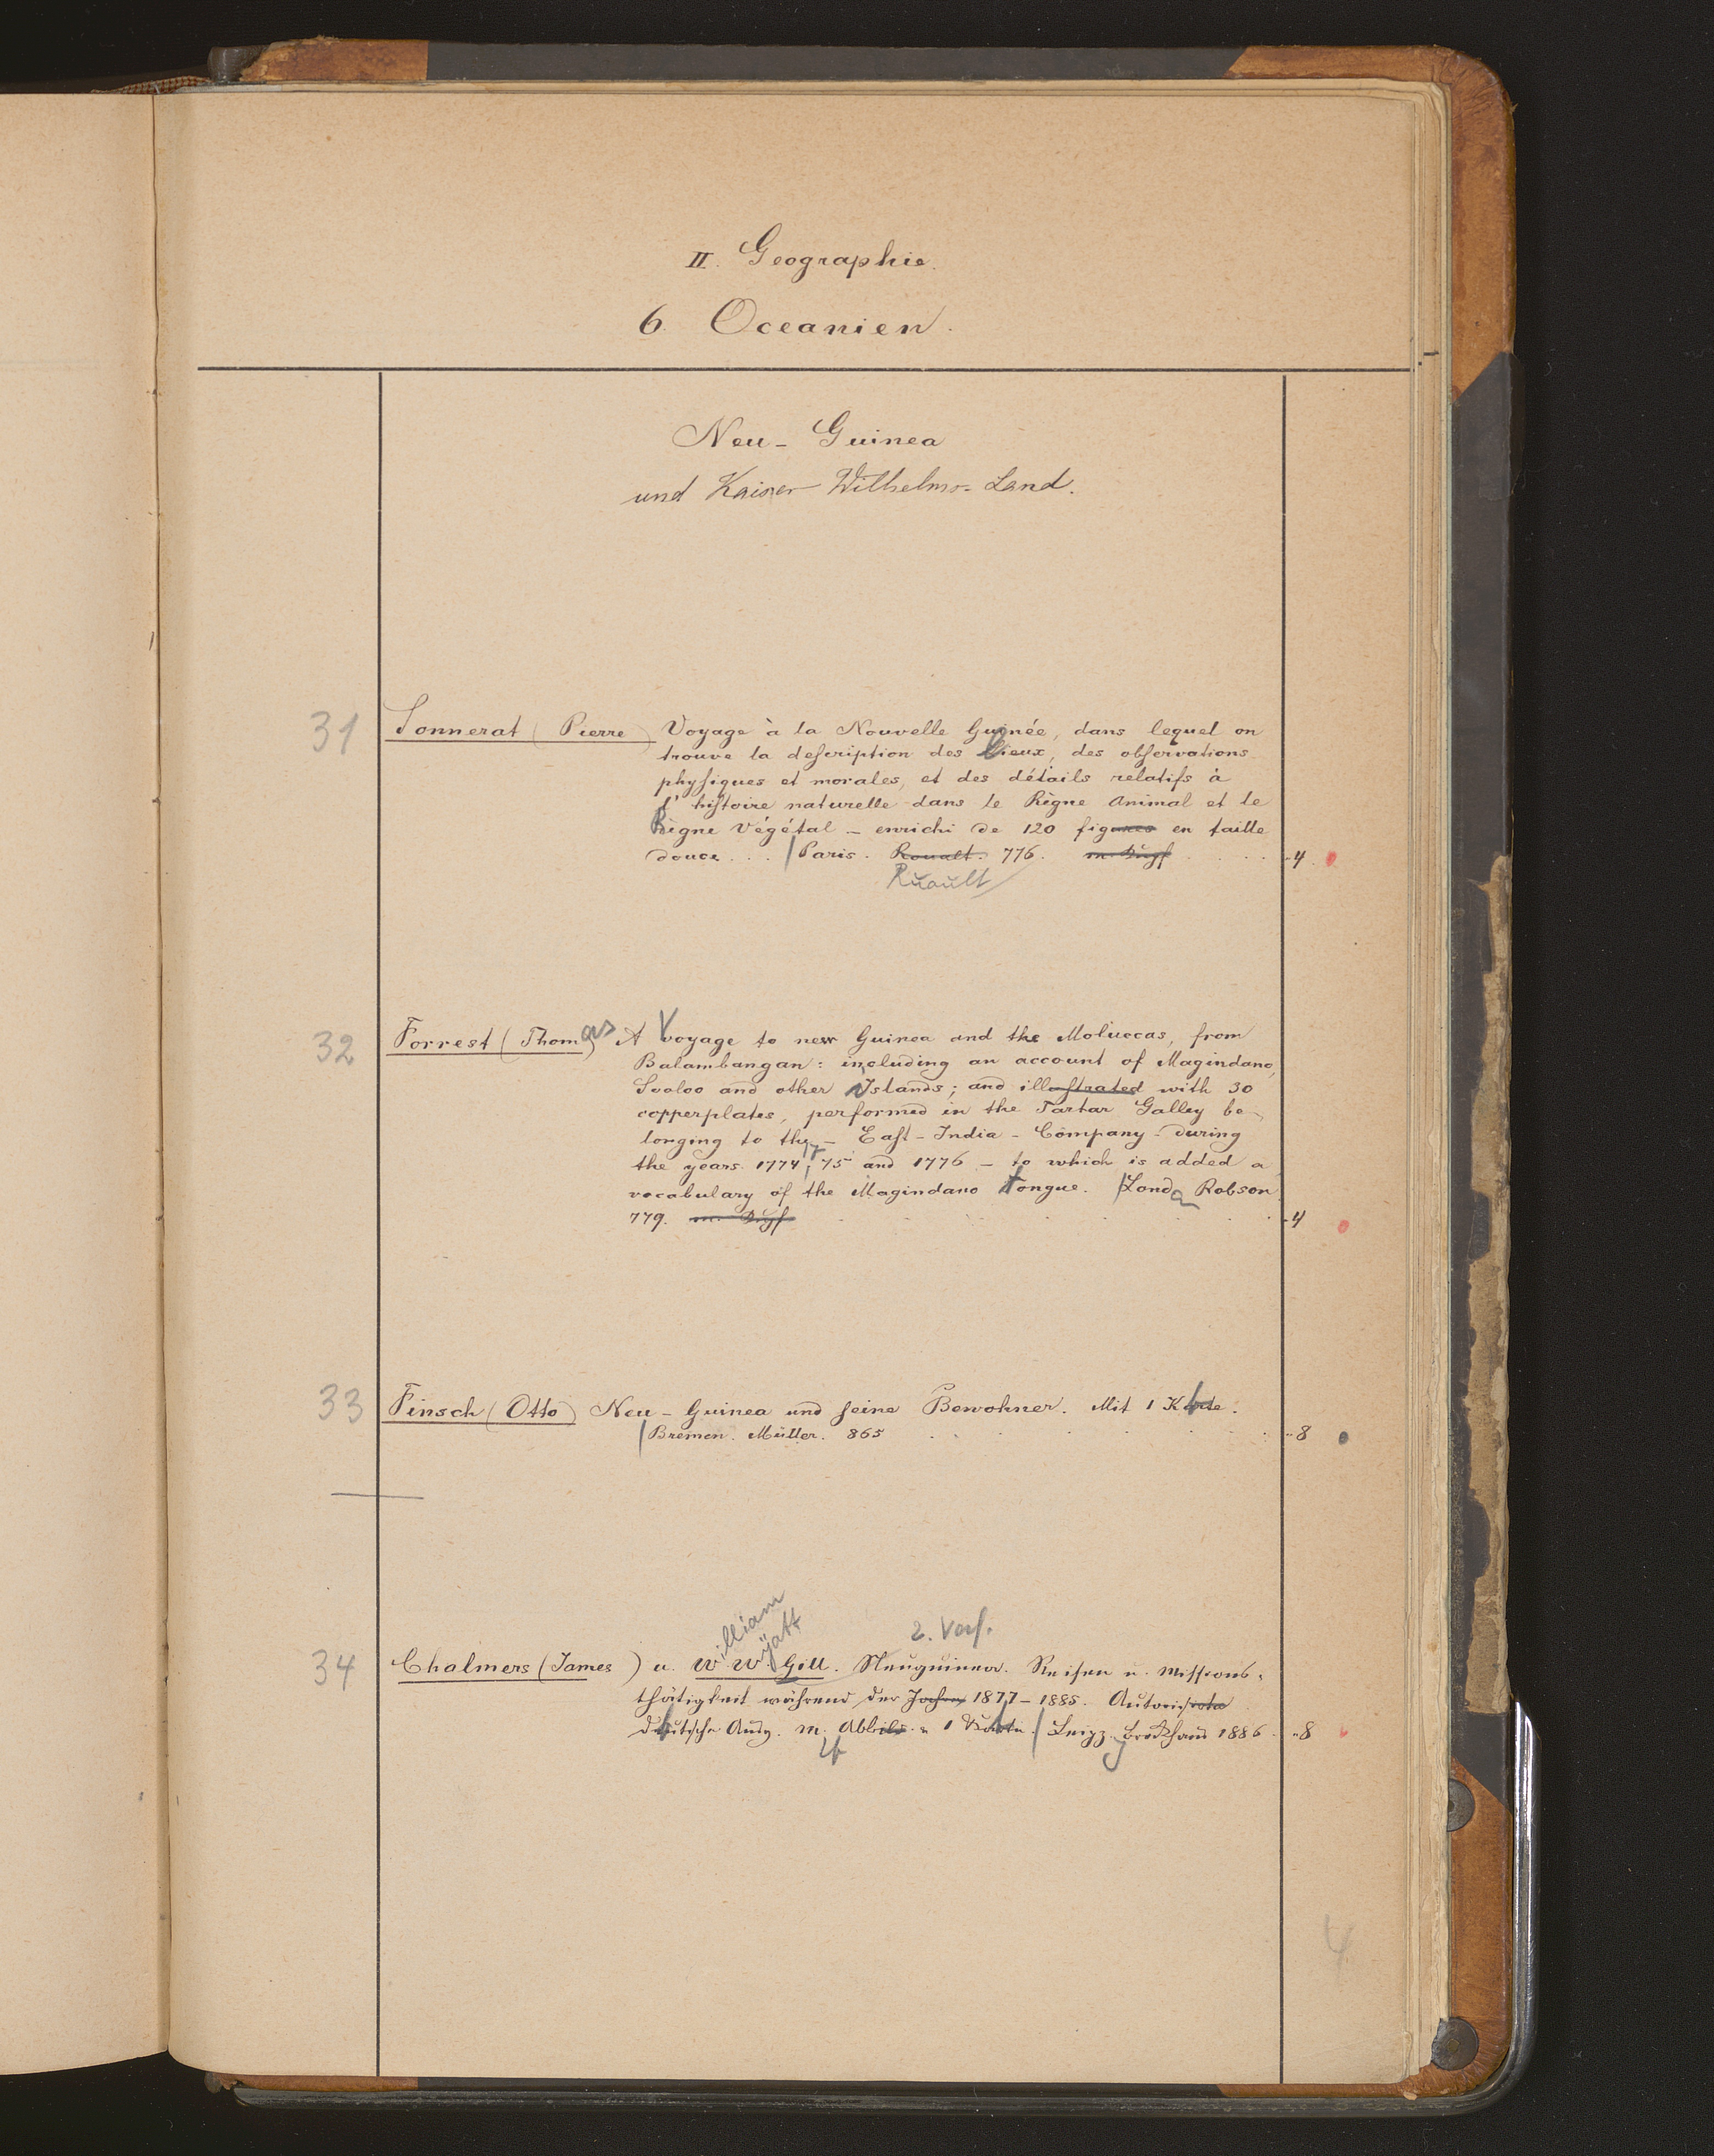 II. Geographie.
6. Oceanien.
Neu-Guinea
und Kaiser Wilhelms-Land.
31 Sonnerat (Pierre) Voyage à la Nouvelle Guinée, dans lequel on
trouve la description des lieux, des observations
physiques et morales, et des détails relatifs à
l'histoire naturelle dans le Règne Animal et le
Règne Végétal – enrichi de 120 figures en taille
douce... Paris. Roualt. 776. m. Dupf 4
Ruault
32 Forrest (Thomas) A Voyage to new Guinea and the Moluccas, from
Balambangan: including an account of Magindano,
Sooloo and other Islands; and illustrated with 30
copperplates, performed in the Tartar Galley be-
longing to the – East-India-Company-during
the years 1774, 75 and 1776 – to which is added a
vocabulary of the Magindano tongue. London Robson.
779. 4
33 Finsch (Otto) Neu-Guinea und seine Bewohner. Mit 1 Karte.
Bremen. Müller. 865 8
William
Wyatt
2. Verf.
34 Chalmers (James) u. W. W. Gill. Neuguinea. Reisen u. Missions-
thätigkeit während der Jahre 1877–1885. Autorisirte
deutsche Ausg. m. Abbild. u. 1 Karte. Leipz. Brockhaus 1886. 8
4